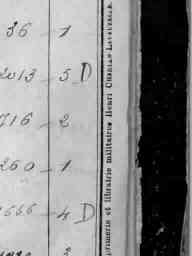 36 - 1
2013 - 5 D
716 - 2
260 - 1
666 - 4 D
imprimerie et librairie militaires Henri Charles-Lavauzelle.